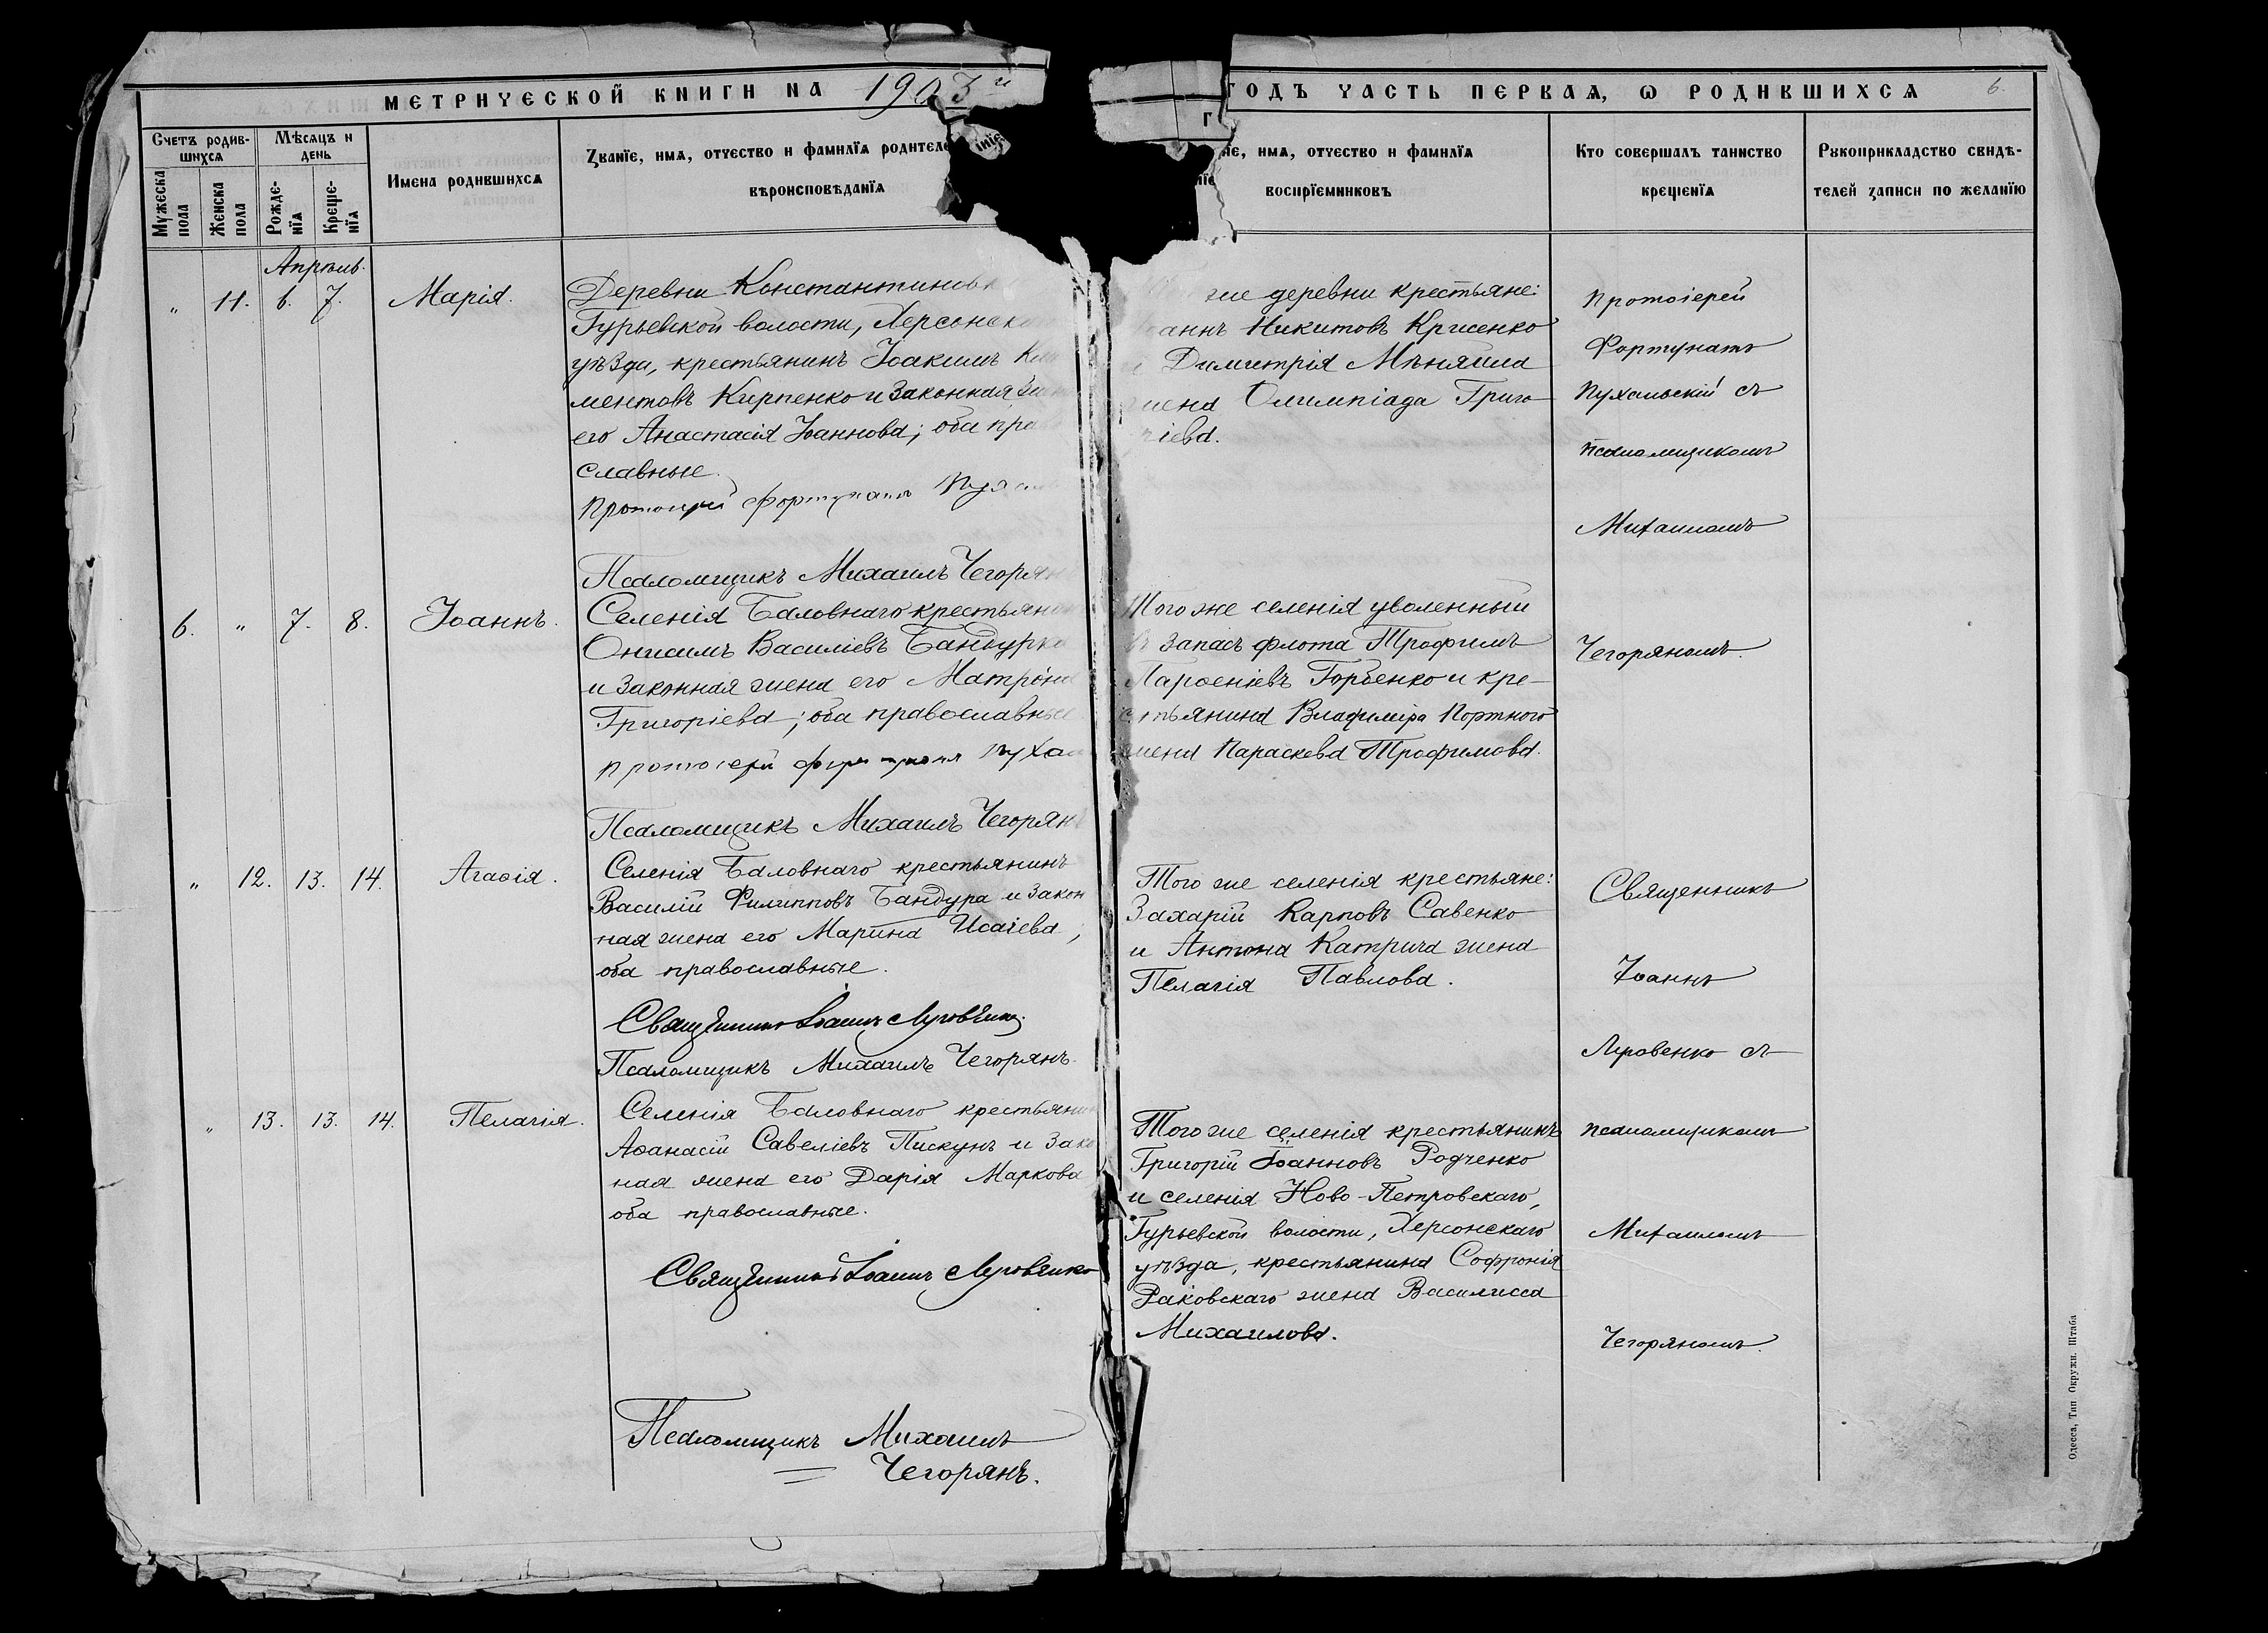 МЕТРИЧЕСКОЙ КНИГИ НА 1903 й
ГОДЪ ЧАСТЬ ПЕРВАЯ, Ѡ РОДИВШИХСЯ
6.
Счетъ родив-
шихся
Мѣсяцъ и
день
Мужеска
пола
Женска
пола
Рожде-
нія
Креще-
нія
Имена родившихся
Званіе, имя, отчество и фамилія родителе
вѣроисповѣданія
имя, отчество и фамилія
воспріемниковъ
Кто совершалъ таинство
крещенія
Рукоприкладство свидѣ-
телей записи по желанію
Апрѣль.
" 11. 6. 7. Марія.
Деревни Константиновк
Гурьевской волости, Херсонска
уѣзда, крестьянинъ Іоакимъ Кли
ментовъ Кирпенко и законная же
его Анастасія Іоаннова; оба прав
славные.
Протоіерей Фортунатъ Пухал
Псаломщикъ Михаилъ Чегорян
же деревни крестьяне:
аннъ Никитовъ Крисенко
и Димитрія Мѣняйла
жена Олимпіада Григо-
ріева.
Протоіерей
Фортунатъ
Пухальскій съ
псаломщикомъ
Михаиломъ
Чегоряномъ.
6. " 7. 8. Іоаннъ.
Селенія Баловнаго крестьянин
Онисимъ Василіевъ Бандурка
и законная жена его Матрона
Григоріева; оба православные
Протоіерей Фортунатъ Пухал
Псаломщикъ Михаилъ Чегорян
Того же селенія уволенный
въ запасъ флота Трофимъ
Парѳеніевъ Горбенко и кре-
стьянина Владиміра Портного
жена Параскева Трофимова.
" 12. 13. 14. Агаѳія.
Селенія Баловнаго крестьянинъ
Василій Филипповъ Бандура и закон
ная жена его Марина Исаіева;
оба православные.
Священникъ Іоаннъ Луговенко
Псаломщикъ Михаилъ Чегорянъ.
Того же селенія крестьяне:
Захарій Карповъ Савенко
и Антона Катрича жена
Пелагія Павлова.
Священникъ
Іоаннъ
Луговенко съ
псаломщикомъ
Михаиломъ
Чегоряномъ.
" 13. 13. 14. Пелагія.
Селенія Баловнаго крестьянин
Аѳанасій Савеліевъ Пискунъ и зако
ная жена его Дарія Маркова
оба православные.
Священникъ Іоаннъ Луговенко
Псаломщикъ Михаилъ
Чегорянъ.
Того же селенія крестьянинъ
Григорій Іоанновъ Родченко
и селенія Ново-Петровскаго,
Гурьевской волости, Херсонскаго
уѣзда, крестьянина Софронія
Раковскаго жена Василисса
Михаилова.
Одесса, Тип. Окружн. Штаба